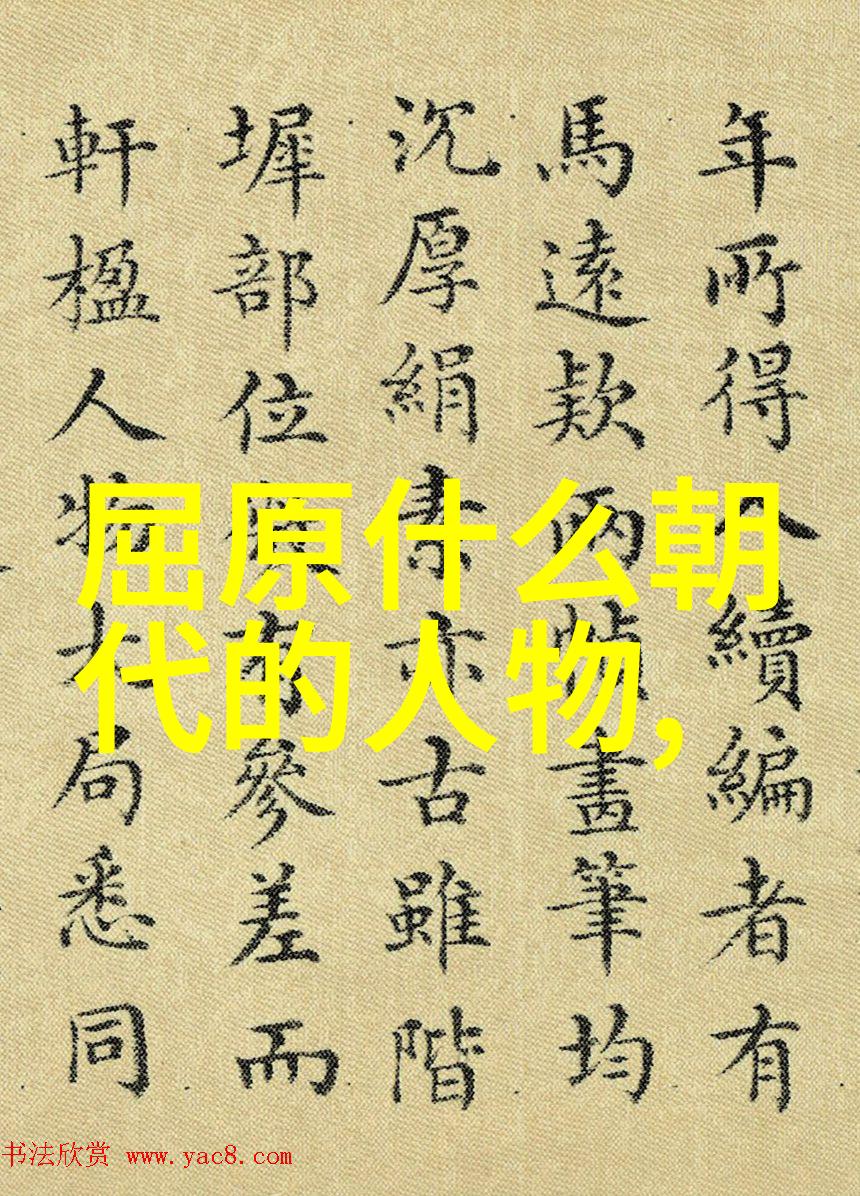 屈原什么朝
代的人物,
年所得入續編者有
馬遠欵兩幀畫筆均
沉厚絹素亦古雖階
墀部位有參差而
軒楹人物大局悉同
书法欣赏 www.yac8.com